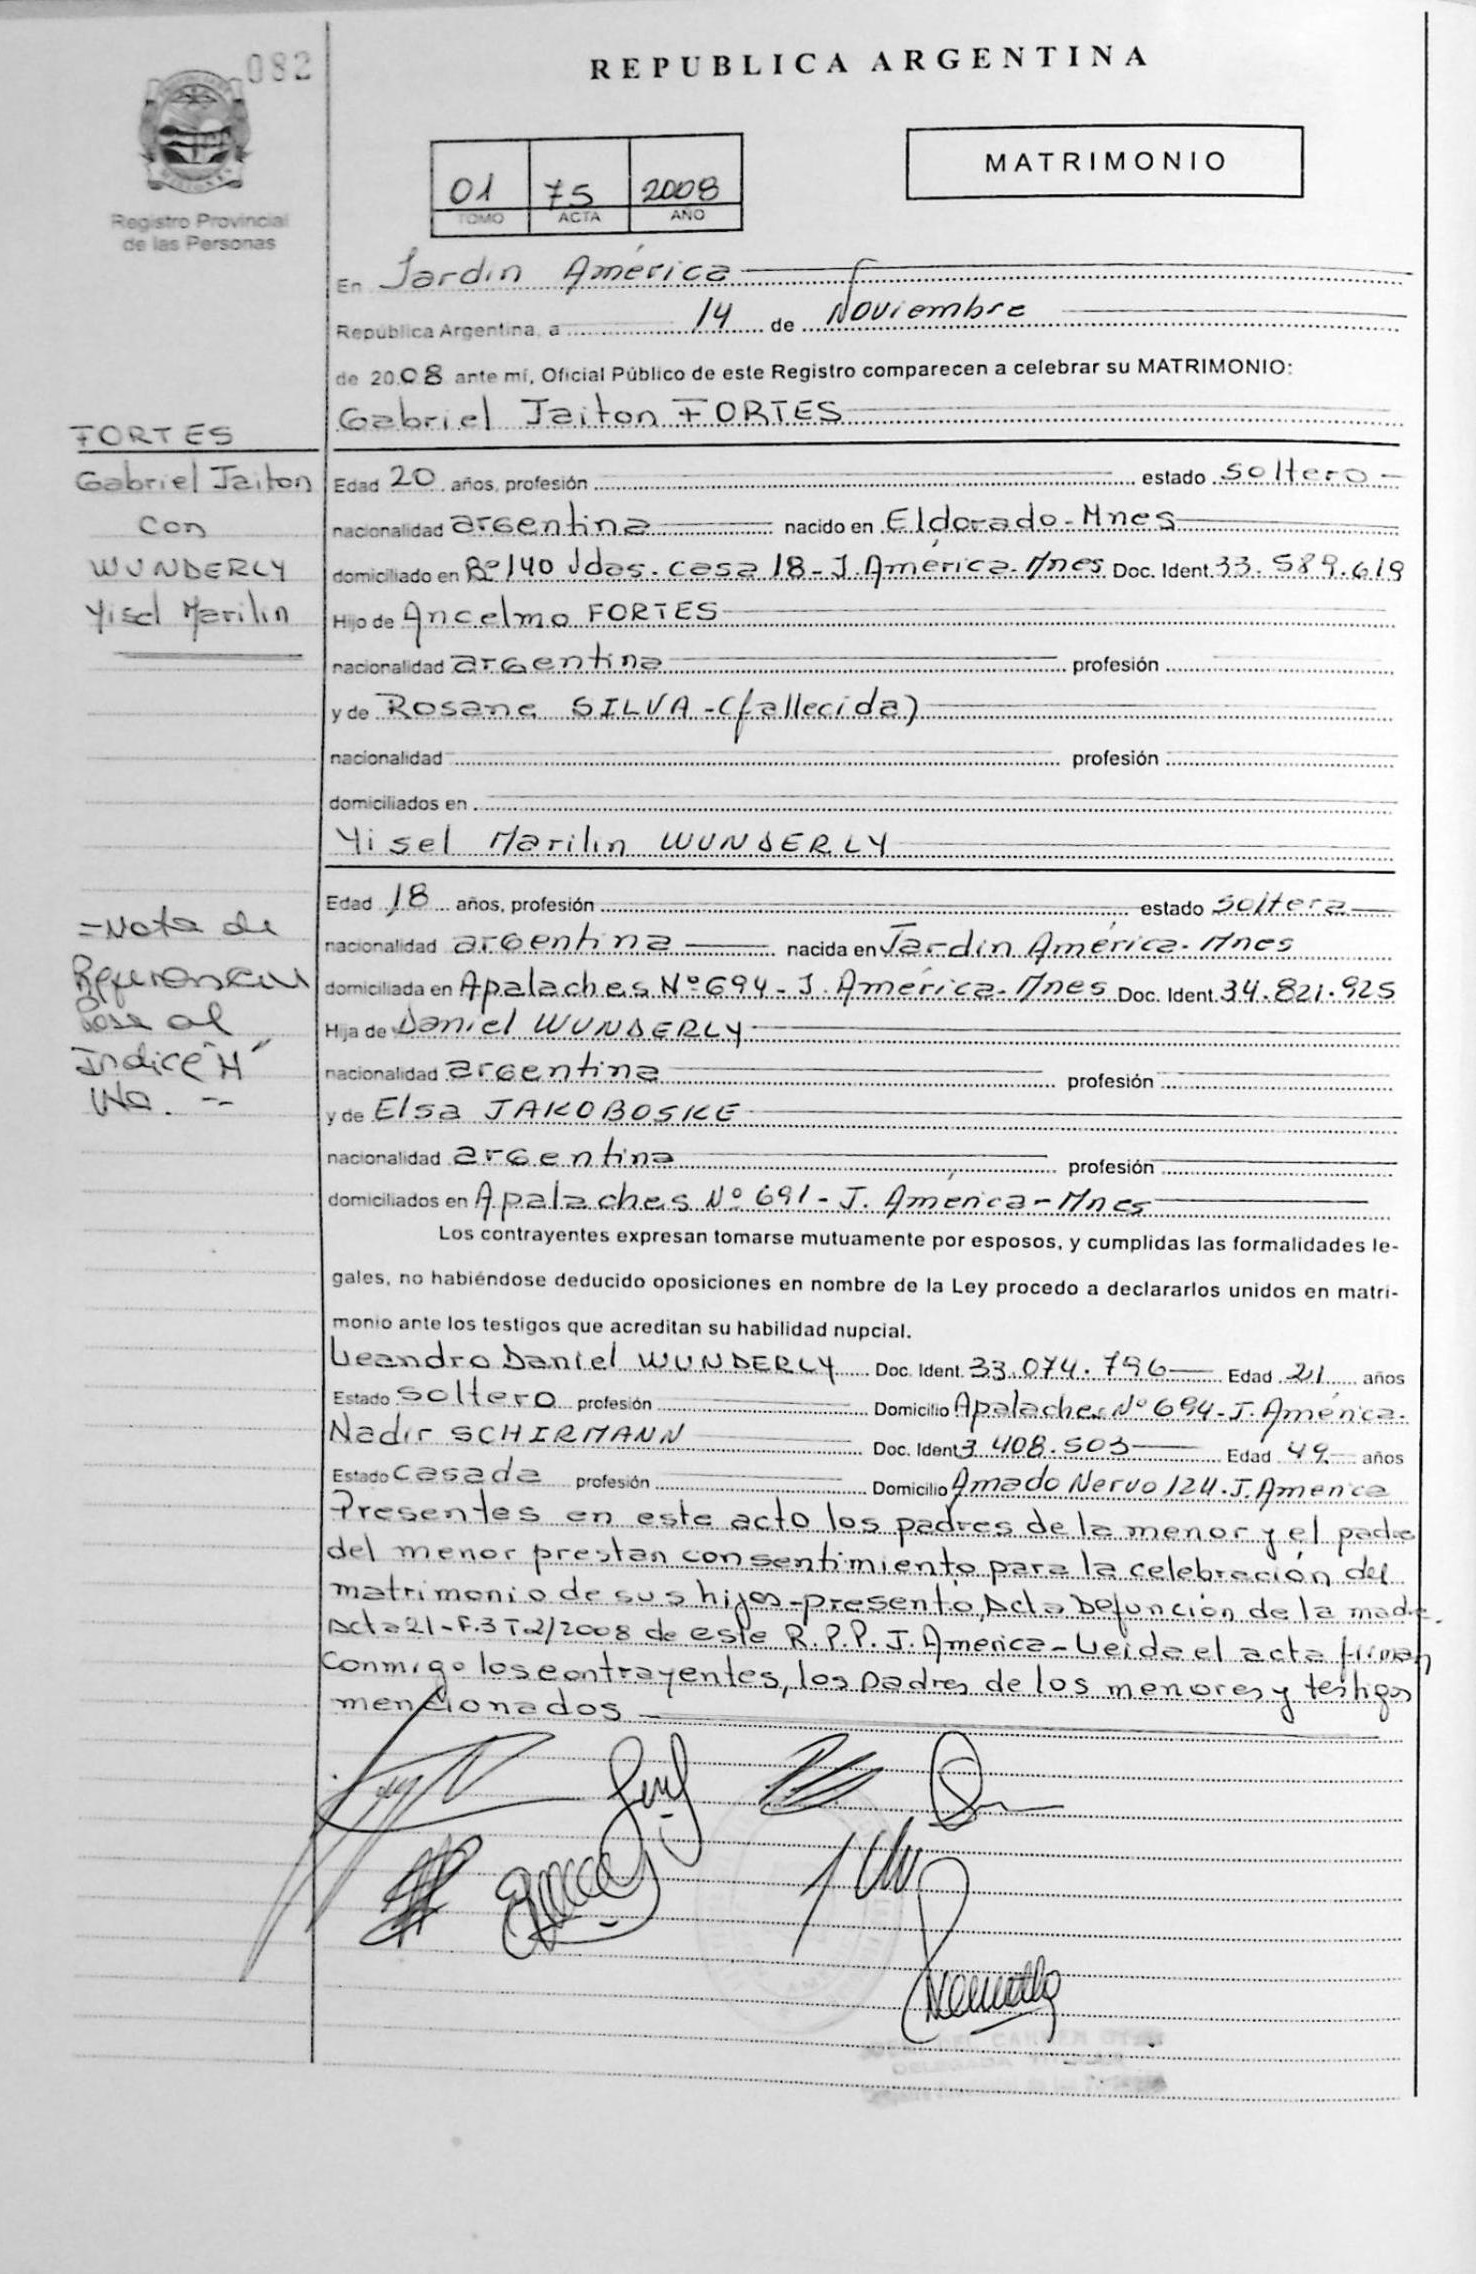 082
REPUBLICA ARGENTINA
MATRIMONIO
01 75 2008
TOMO ACTA AÑO
Registro Provincial
de las Personas
En Jardín América
República Argentina, a 14 de Noviembre
de 2008 ante mí, Oficial Público de este Registro comparecen a celebrar su MATRIMONIO:
Gabriel Jaiton FORTES
FORTES
Gabriel Jaiton
con
WUNDERLY
Yisel Marilin
Edad 20 años, profesión estado soltero
nacionalidad argentina nacido en Eldorado-Mnes
domiciliado en Bº 140 Vdas. casa 18-J. América-Mnes Doc. Ident. 33.589.619
Hijo de Ancelmo FORTES
nacionalidad argentina profesión
y de Rosane SILVA-(fallecida)
nacionalidad profesión
domiciliados en
Yisel Marilin WUNDERLY
Edad 18 años, profesión estado soltera
nacionalidad argentina nacida en Jardín América-Mnes
domiciliada en Apalaches Nº 694-J. América-Mnes Doc. Ident. 34.821.925
Hija de Daniel WUNDERLY
nacionalidad argentina profesión
y de Elsa JAKOBOSKE
nacionalidad argentina profesión
domiciliados en Apalaches Nº 691-J. América-Mnes
=Nota de
Referencia
Pasa al
Indice "M"
Los contrayentes expresan tomarse mutuamente por esposos, y cumplidas las formalidades le-
gales, no habiéndose deducido oposiciones en nombre de la Ley procedo a declararlos unidos en matri-
monio ante los testigos que acreditan su habilidad nupcial.
Leandro Daniel WUNDERLY Doc. Ident. 33.074.796 Edad 21 años
Estado soltero profesión Domicilio Apalaches Nº 694-J. América.
Nadir SCHIRMANN Doc. Ident 3.408.503 Edad 49 años
Estado casada profesión Domicilio Amado Nervo 124-J. América
Presentes en este acto los padres de la menor y el padre
del menor prestan consentimiento para la celebración del
matrimonio de sus hijos-presentó Acta Defunción de la madre.
Acta 21-F.3 T.2/2008 de este R.P.P. J. América-Leida el acta firman
conmigo los contrayentes, los padres de los menores y testigos
mencionados
DEL CARMEN
DELEGADA